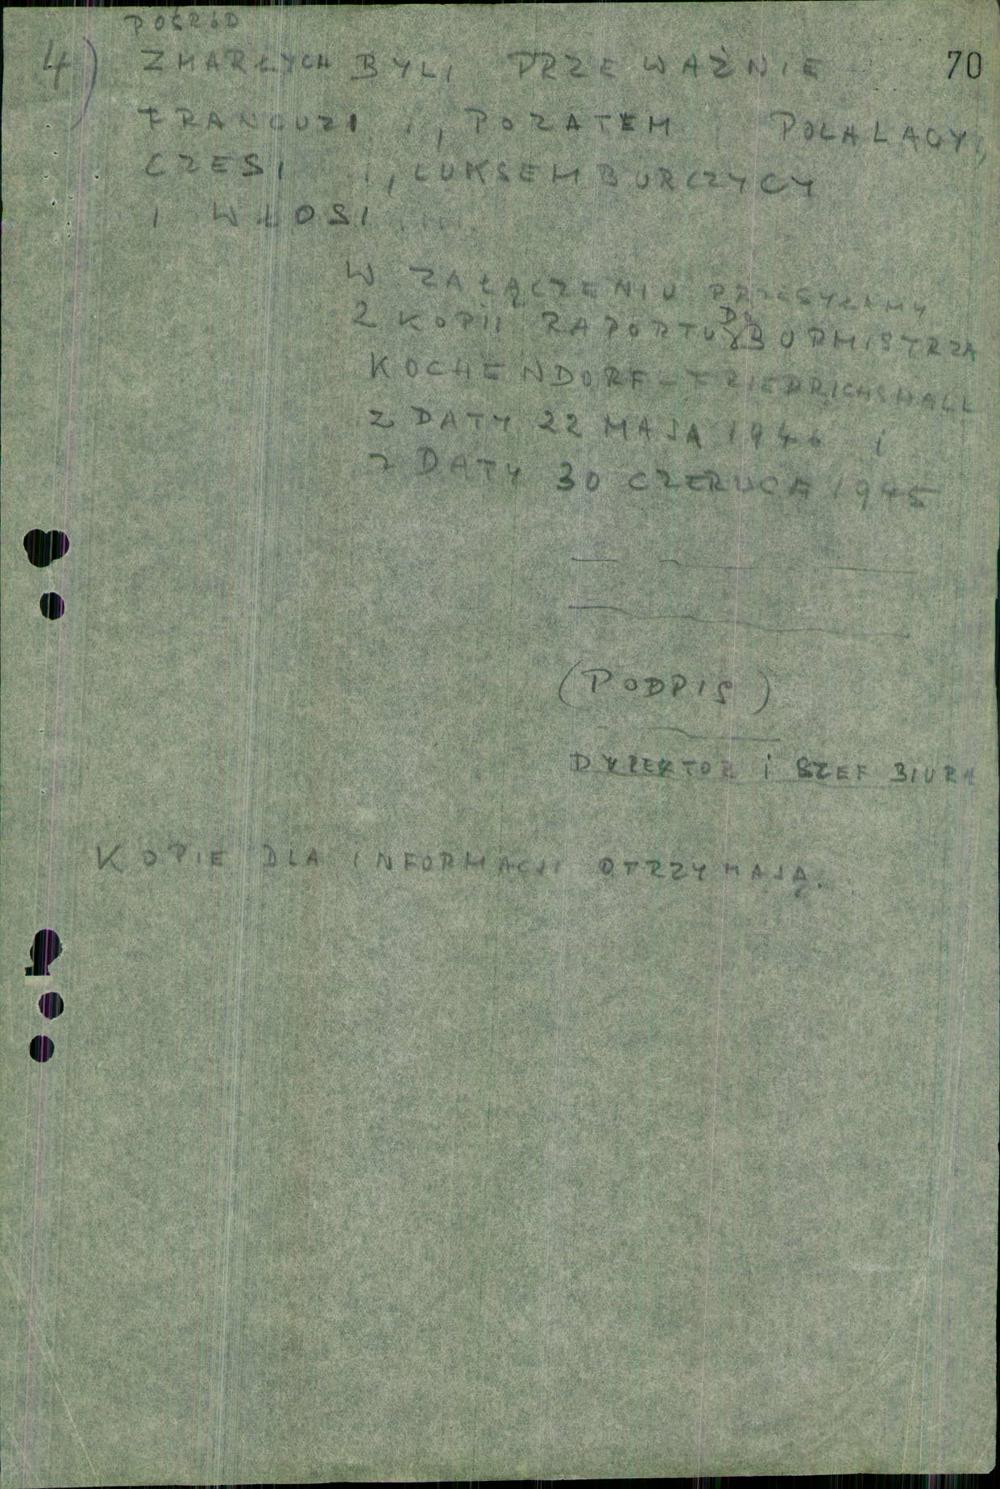 POŚRÓD
4) ZMARŁYCH BYLI PRZEWAŻNIE 70
FRANCUZI , POZATEM POLALACY,
CZESI , LUKSEMBURCZYCY
I WŁOSI
W ZAŁĄCZENIU PRZESYŁAMY
2 KOPII RAPORTU BURMISTRZA
KOCHENDORF-FRIEDRICHSHALL
Z DATY 22 MAJA 1946 i
Z DATY 30 CZERWCA 1945
(PODPIS)
DYREKTOR i SZEF BIURA
KOPIE DLA INFORMACJI OTRZYMAJĄ.